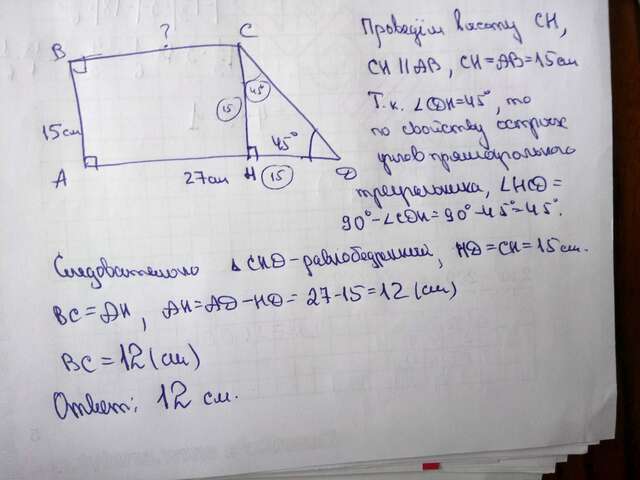 B
?
C
15см
15
45°
A
27см
H
15
45°
D
Проведём высоту CH,
CH || AB, CH = AB = 15 см
Т.к. ∠CDH = 45°, то
по свойству острых
углов прямоугольного
треугольника, ∠HCD =
90° - ∠CDH = 90° - 45° = 45°.
Следовательно △CHD - равнобедренный, HD = CH = 15 см.
BC = AH, AH = AD - HD = 27 - 15 = 12 (см)
BC = 12 (см)
Ответ: 12 см.